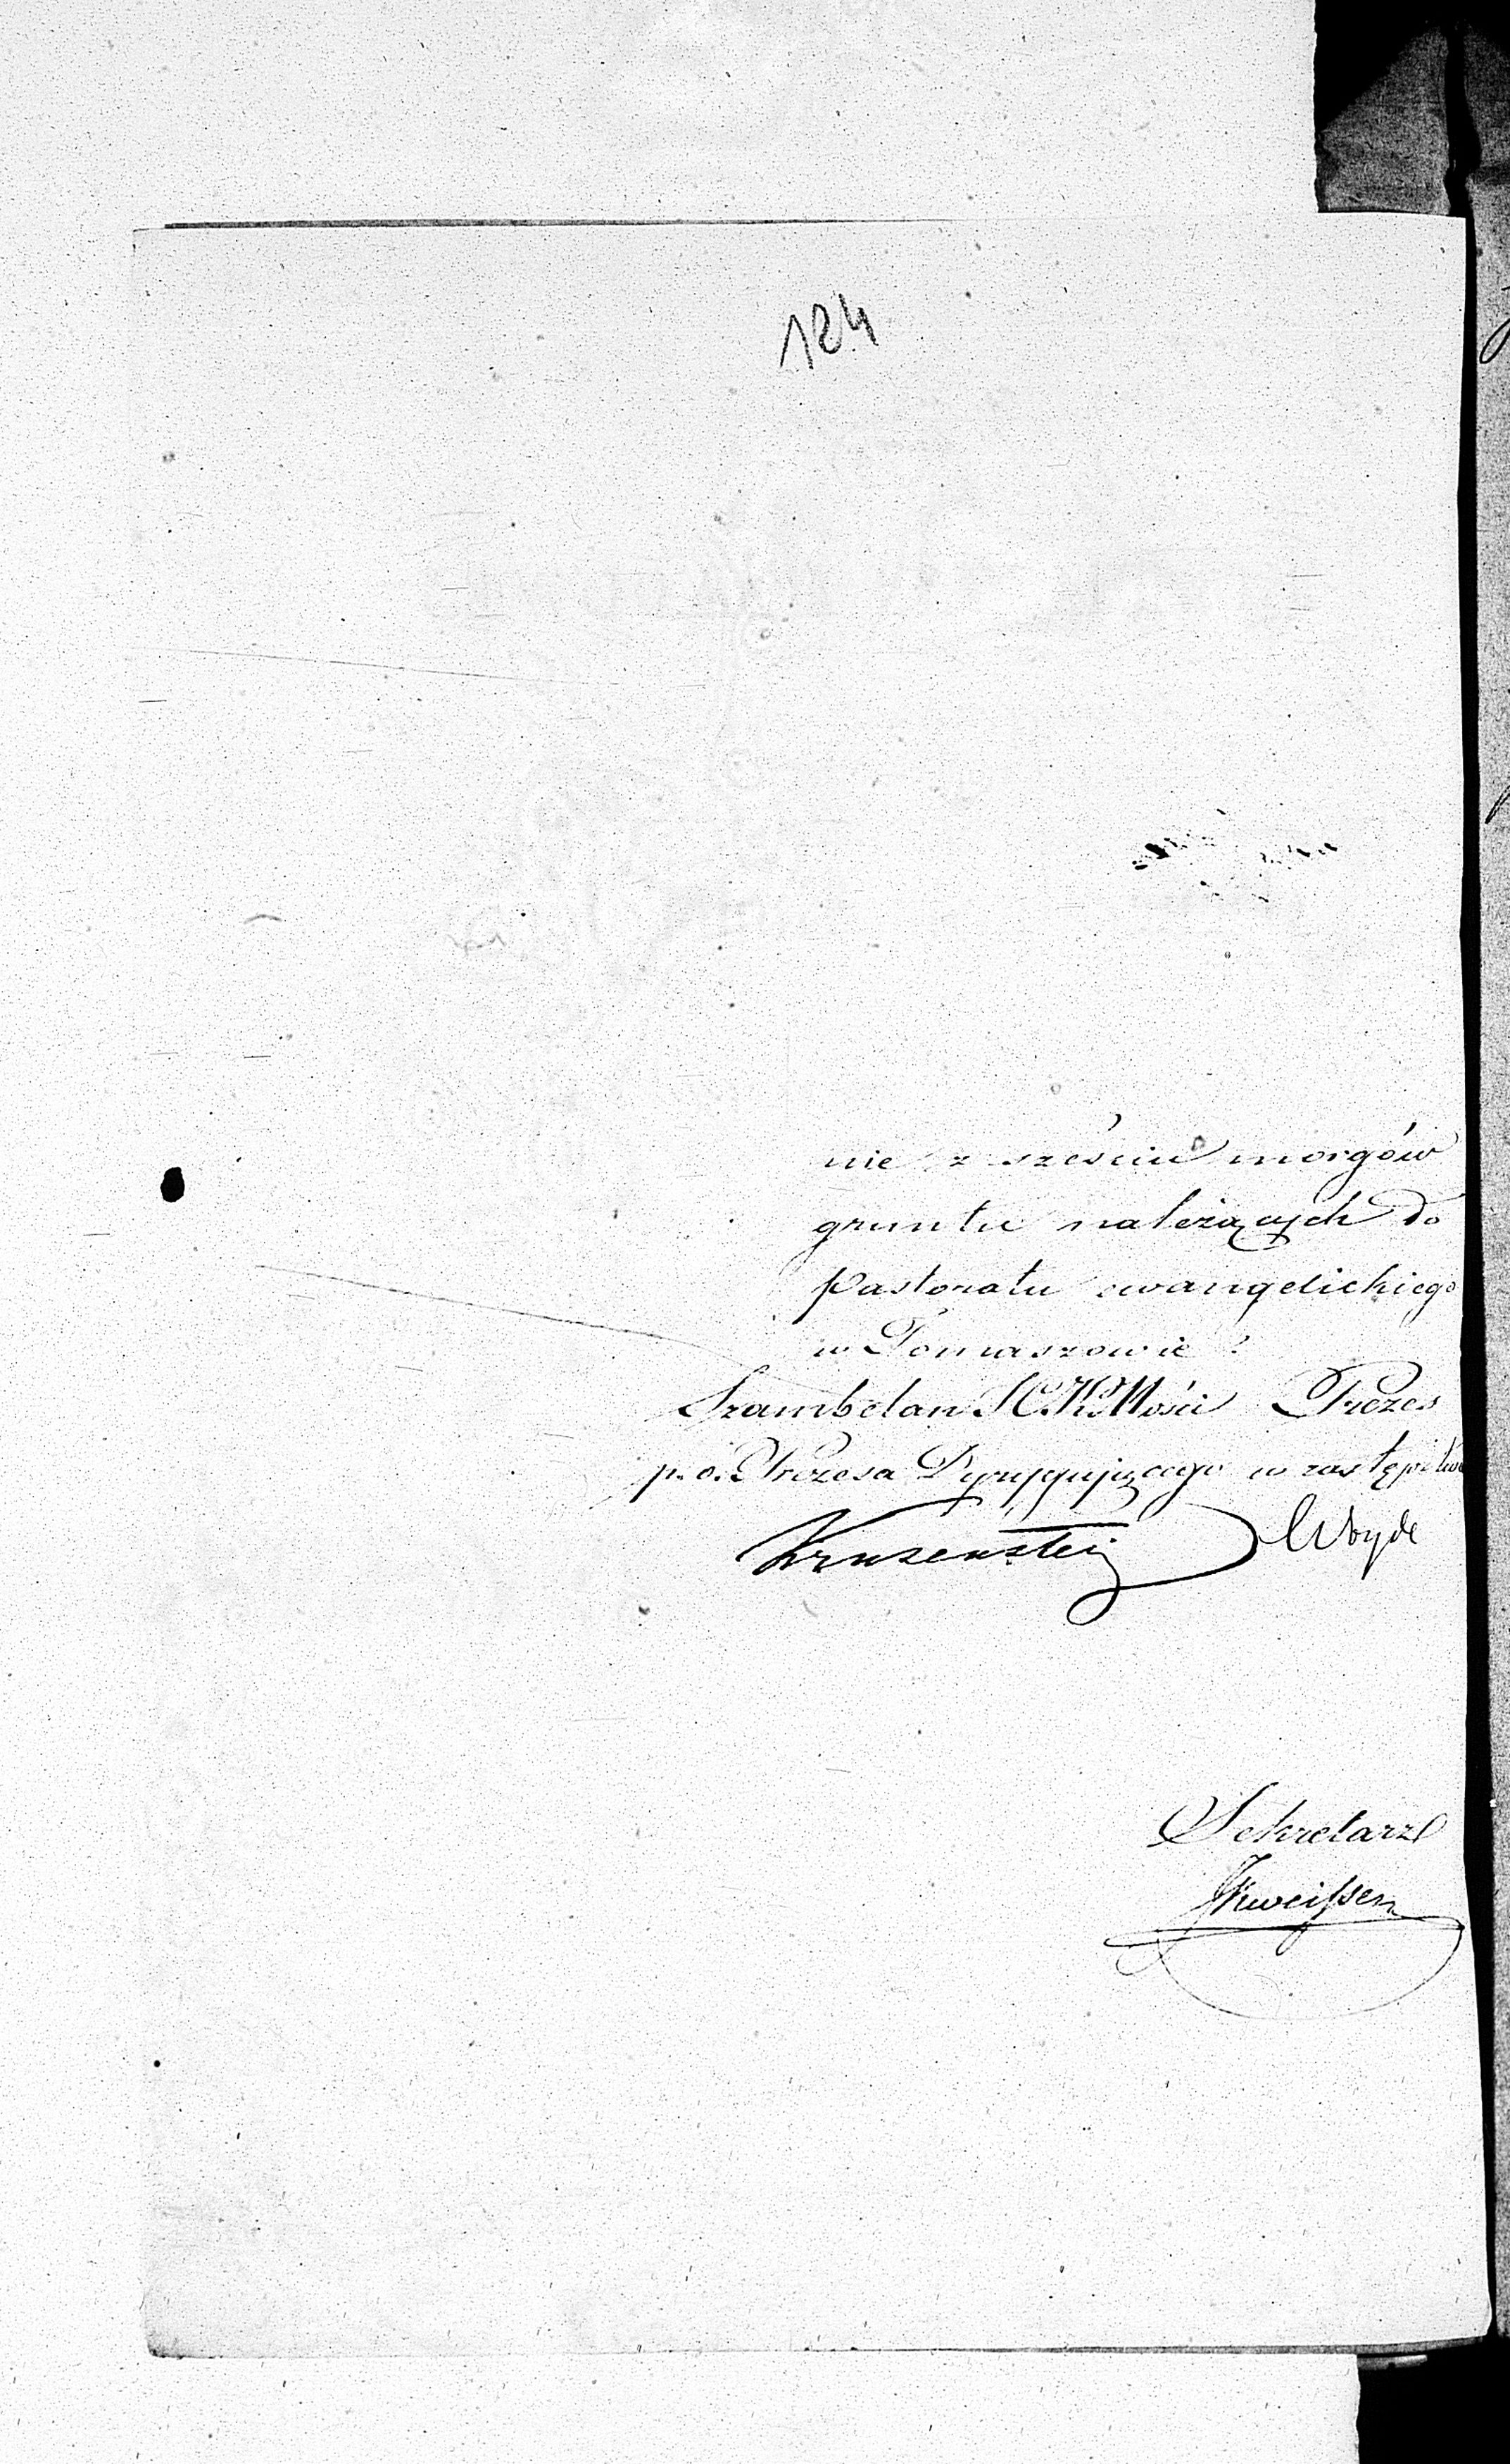 124
nie z sześciu morgów
gruntu należących do
Pastoratu ewangelickiego
w Tomaszowie.
Szambelan J.C.K.Mości Prezes
p.o. Prezesa Dyrygującego w zastępstwie
Krusenstern Woyde
Sekretarz